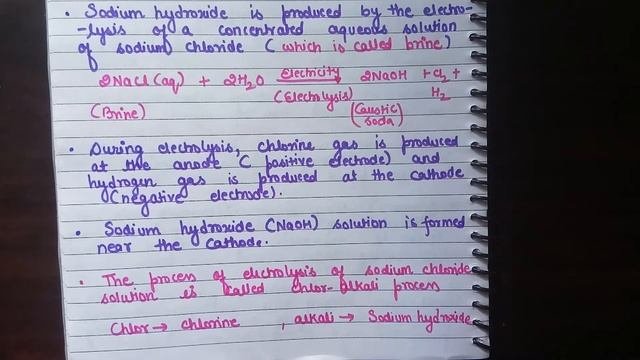 • Sodium hydroxide is produced by the electro-
-lysis of a concentrated aqueous solution
of sodium chloride ( which is called brine)
2NaCl (aq) + 2H₂O Electricity → 2NaOH + Cl₂ +
(Electrolysis) H₂
(Brine) (Caustic
soda)
• During electrolysis, chlorine gas is produced
at the anode ( positive electrode) and
hydrogen gas is produced at the cathode
(negative electrode).
• Sodium hydroxide (NaOH) solution is formed
near the cathode.
• The process of elctrolysis of sodium chloride
solution is called chlor-alkali process
Chlor → chlorine , alkali → Sodium hydroxide